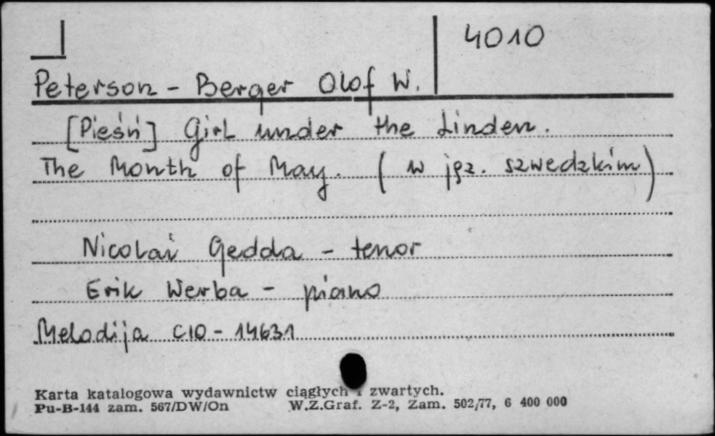 4010
Peterson - Berger Olof W.
[Pieśń] Girl under the Linden.
The Month of May. ( w jęz. szwedzkim)
Nicolai Gedda - tenor
Erik Werba - piano
Melodija C10 - 14631
Karta katalogowa wydawnictw ciągłych i zwartych.
Pu-B-144 zam. 567/DW/On W.Z.Graf. Z-2, Zam. 502/77, 6 400 000